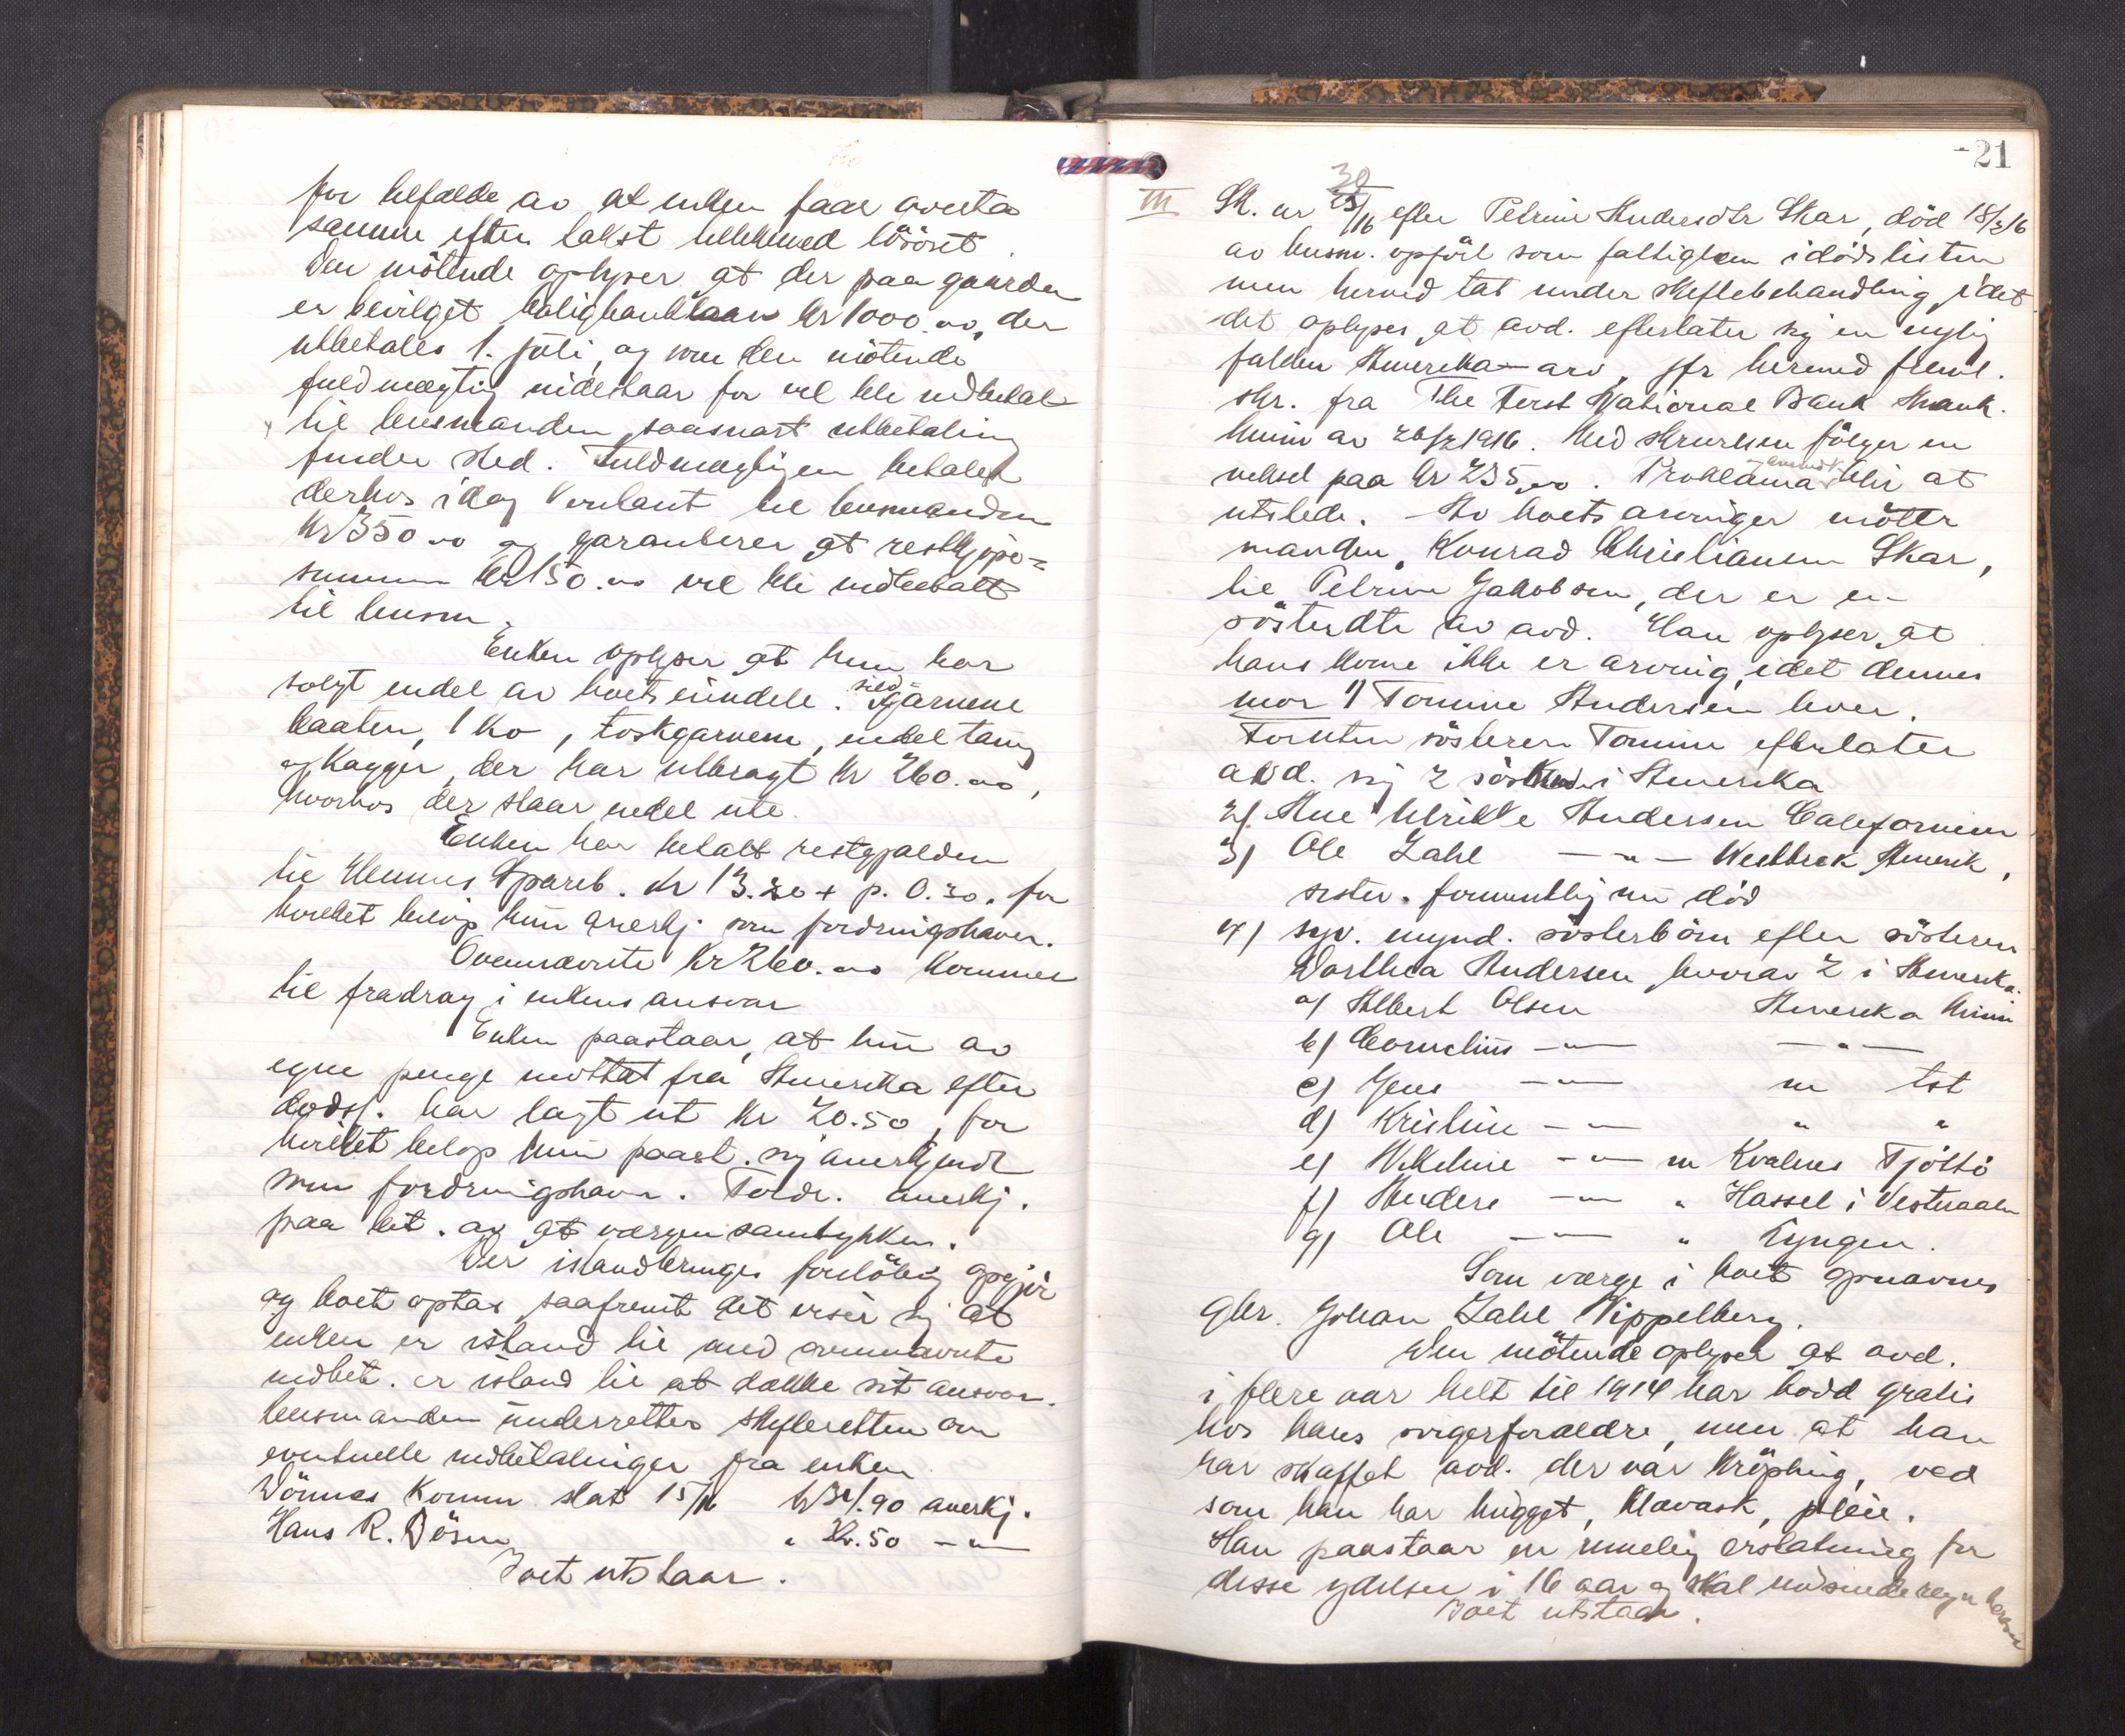 for tilfælde av at enken faar overta
samme efter takst uttilmed løsøret
Den møtende oplyser at der paa gaarden
er bevilget boligbanklaan kr 1000.00, der
utbetales 1. juli, og som den møtende
fuldmægtig indestaar for vil bli indbetalt
til lensmanden saasnart utbetaling
finder sted. Fuldmægtigen betalet
derhos idag kontant til lensmanden
kr 350.00 og garanterer at restkjøpe-
summen kr 150.00 vil bli indbetalt
til lensm.
Enken oplyser at hun har
solgt endel av boets eiendele. sildgarnene
baaten, 1 ko, toskgarnene, endel tang
og kagger, der har utbragt kr 260.00,
hvorhos der staar endel ute.
Enken har betalt restgjælden
til Hemnes Spareb. kr 13.20 + p. 0.30, for
hvilket beløp hun anerkj. som fordringshaver.
Ovennævnte kr 260.00 kommer
til fradrag i enkens ansvar
Enken paastaar, at hun av
egne penge mottat fra Amerika efter
dødsf. har lagt ut kr 20.50, for
hvilket beløp hun paast. sig anerkjendt
som fordringshaver. Fordr. anerkj.
paa bet. av at værgen samtykker.
Der istandbringes foreløbig opgjør
og boet optas, saafremt det viser sig at
enken er istand til med ovennævnte
indbet. er istand til at dække sit ansvar.
Lensmanden underretter skifteretten om
eventuelle indbetalinger fra enken
Dønnes komm. skat 15/16 kr 31.90 anerkj.
Hans R. Døsen " 22.50 — " —
Boet utstaar.
21
III 30
Sk. nr 25/16 efter Petrine Andersdtr Skar, død 18/2 16
av lensm. opført som fattiglem i dødslisten
men herved tat under skiftebehandling idet
det oplyses at avd. efterlater sig en nylig
falden Amerika-arv, jfr hermed freml.
skr. fra The First National Bank Mank.
Minn av 26/2 1916. Med skrivelsen følger en
veksel paa kr 235.00. Proklama blir at
utstede. Av boets arvinger møtte
manden, Konrad Christiansen Skar,
til Petrine Jakobsen, der er en
søsterdtr av avd. Han oplyser at
hans kone ikke er arving, idet dennes
mor 1) Tomine Andersen lever.
Foruten søsteren Tomine efterlater
avd. sig 2 søskend i Amerika
2) Ane Ulrikke Andersen Californien
3) Ole Zahl — " — Westbrok Amerik,
sister. formentlig nu død
4) syv. mynd. søsterbørn efter søsteren
Dorthea Andersen hvorav 2 i Amerika.
a) Albert Olsen Amerika Minn
b) Cornelius — " — — " —
c) Jens — " — m tst
d) Kristine — " — " "
e) Vilhelmine — " — m Kvalnes Tjøttø
f) Anders — " — " Hassel i Vesteraalen
g) Ole — " — " Lyngen.
Som værge i boet opnævnes
gbr. Johan Zahl Vippelberg.
Den møtende oplyser at avd.
i flere aar helt til 1914 har bodd gratis
hos hans svigerforældre, men at han
har skaffet avd. der var krøpling, ved
som han har hugget, klævask, pleie.
Han paastaar en rimelig erstatning for
disse ydelser i 16 aar og skal indsende regn herover
Boet utstaar.